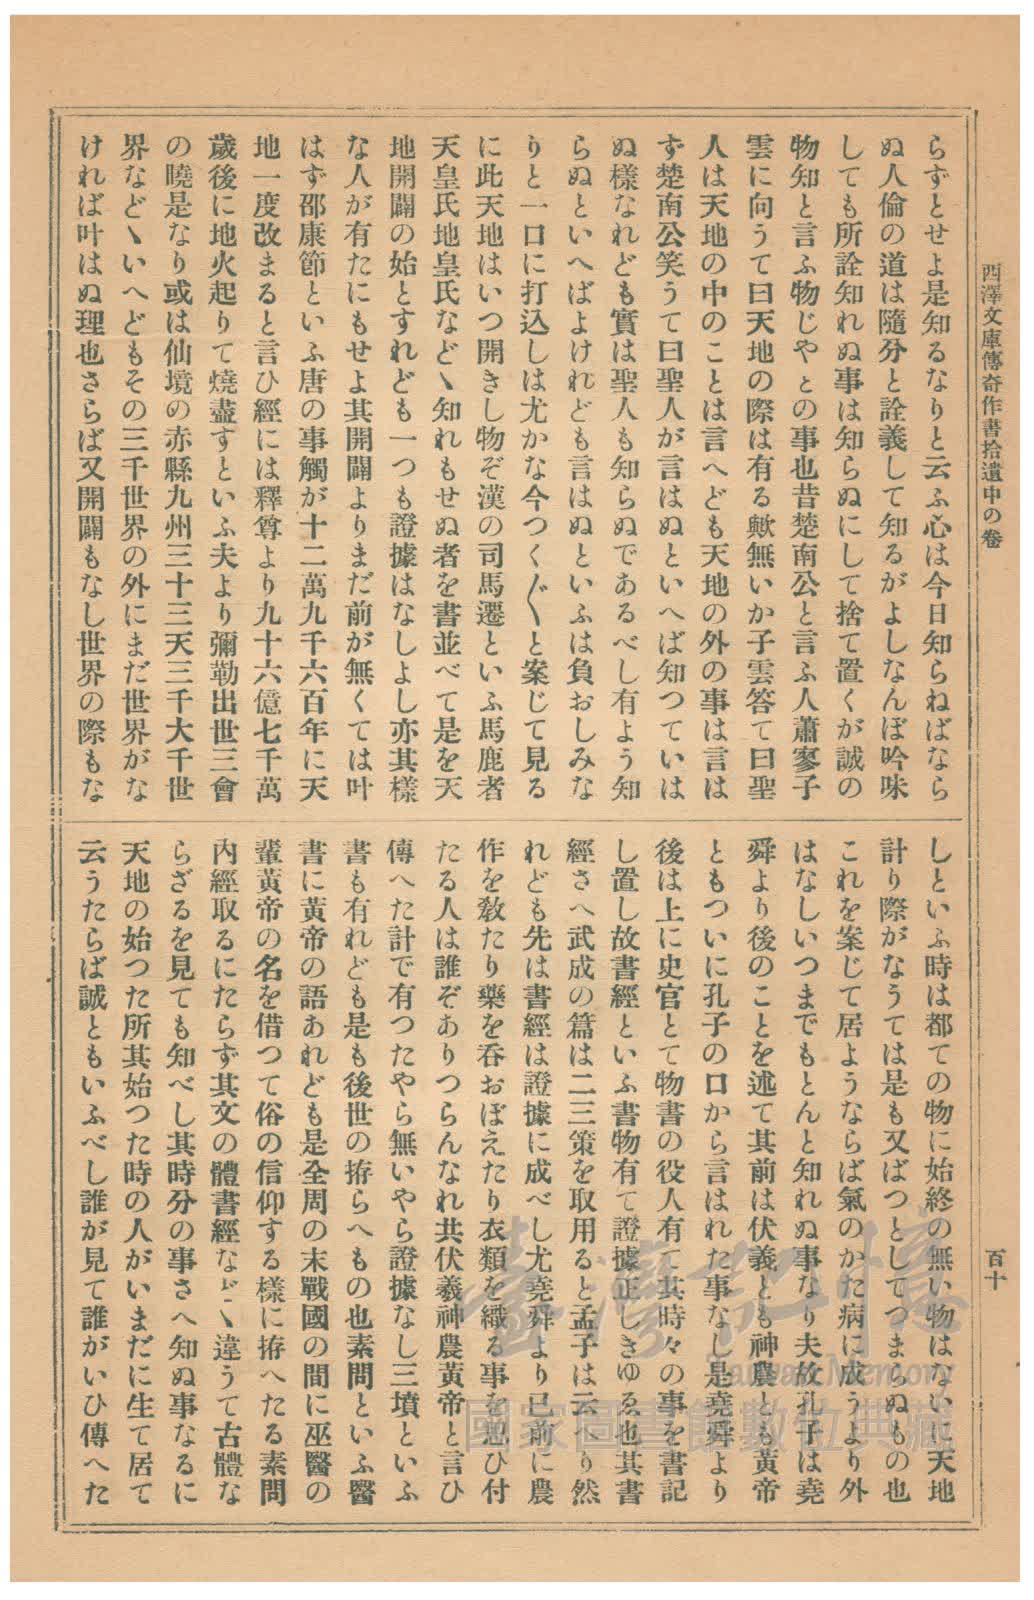 西澤文庫傳奇作書拾遺中の卷
百十
らずとせよ是知るなりと云ふ心は今日知らねばなら
ぬ人倫の道は隨分と詮義して知るがよしなんぼ吟味
しても所詮知れぬ事は知らぬにして捨て置くが誠の
物知と言ふ物じやとの事也昔楚南公と言ふ人蕭寥子
雲に向うて曰天地の際は有る歟無いか子雲答て曰聖
人は天地の中のことは言へども天地の外の事は言は
ず楚南公笑うて曰聖人が言はぬといへば知つていは
ぬ樣なれども實は聖人も知らぬであるべし有よう知
らぬといへばよけれども言はぬといふは負おしみな
りと一口に打込しは尤かな今つく〲と案じて見る
に此天地はいつ開きし物ぞ漢の司馬遷といふ馬鹿者
天皇氏地皇氏などゝ知れもせぬ者を書並べて是を天
地開闢の始とすれども一つも證據はなしよし亦其樣
な人が有たにもせよ其開闢よりまだ前が無くては叶
はず邵康節といふ唐の事觸が十二萬九千六百年に天
地一度改まると言ひ經には釋尊より九十六億七千萬
歲後に地火起りて燒盡すといふ夫より彌勒出世三會
の曉是なり或は仙境の赤縣九州三十三天三千大千世
界などゝいへどもその三千世界の外にまだ世界がな
ければ叶はぬ理也さらば又開闢もなし世界の際もな
しといふ時は都ての物に始終の無い物はないに天地
計り際がなうては是も又ばつとしてつまらぬもの也
これを案じて居ようならば氣のかた病に成うより外
はなしいつまでもとんと知れぬ事なり夫故孔子は堯
舜より後のことを述て其前は伏義とも神農とも黃帝
ともついに孔子の口から言はれた事なし是堯舜より
後は上に史官とて物書の役人有て其時々の事を書記
し置し故書經といふ書物有て證據正しきゆゑ也其書
經さへ武成の篇は二三策を取用ると孟子は云へり然
れども先は書經は證據に成べし尤堯舜より已前に農
作を敎たり藥を呑おぼえたり衣類を織る事を思ひ付
たる人は誰ぞありつらんなれ共伏羲神農黃帝と言ひ
傳へた計で有つたやら無いやら證據なし三墳といふ
書も有れども是も後世の拵らへもの也素問といふ醫
書に黃帝の語あれども是全周の末戰國の間に巫醫の
輩黃帝の名を借つて俗の信仰する樣に拵へたる素問
內經取るにたらず其文の體書經などゝ違うて古體な
らざるを見ても知べし其時分の事さへ知ぬ事なるに
天地の始つた所其始つた時の人がいまだに生て居て
云うたらば誠ともいふべし誰が見て誰がいひ傳へた
臺灣記憶
Taiwan Memory
國家圖書館數位典藏